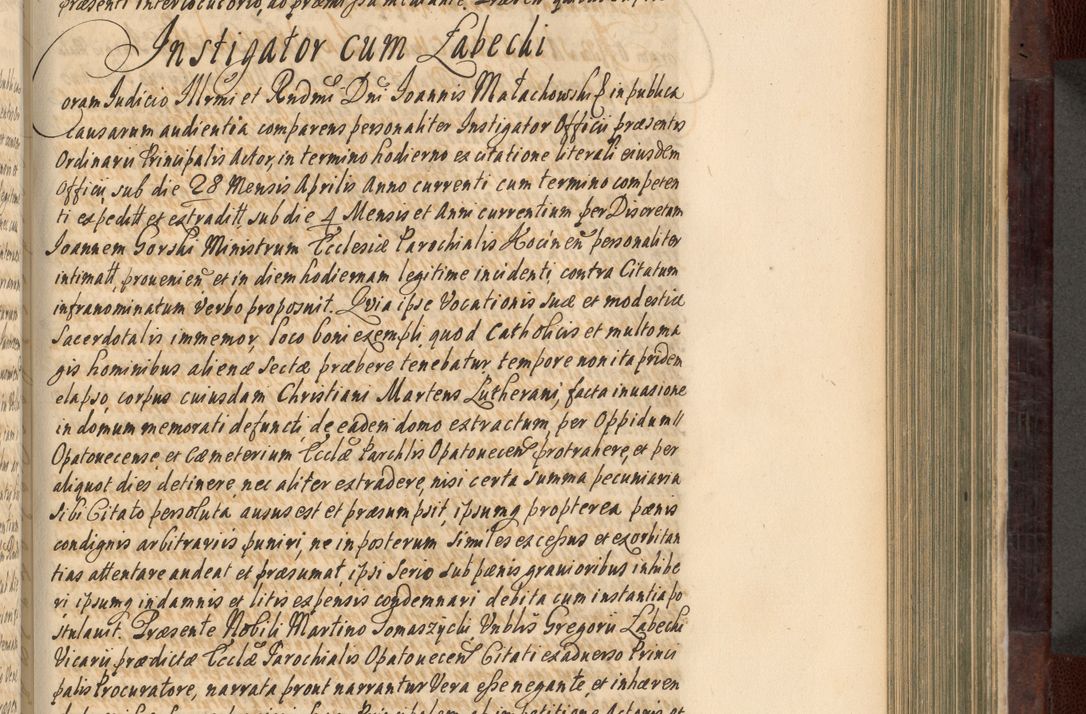 præsenti interlocutorio, ad præmissa
Instigator cum Łabecki
Coram Iudicio Illrmi et Rndmi Dni Ioannis Małachowski E in publica
causarum audientia comparens personaliter Instigator Officii præsentis
Ordinarii Principalis Actor, in termino hodierno ex citatione literali eiusdem
Officii, sub die 28 Mensis Aprilis Anno currenti cum termino competen
ti expeditt et extraditt, sub die 4 Mensis et Anni currentium per Discretum
Ioannem Gorski Ministrum Ecclesiæ Parochialis Kocinen personaliter
intimatt, provenien et in diem hodiernam legitime incidenti contra Citatum
infranominatum verbo proposuit. Quia ipse Vocationis suæ et modestiæ
Sacerdotalis immemor, loco boni exempli, quod Catholicis et multo ma
gis hominibus alienæ Sectæ præbere tenebatur, tempore non ita pridem
elapso, corpus cuiusdam Christiani Martens Lutherani, facta invasione
in domum memorati defuncti, de eadem domo extractum, per Oppidum
Opatovecense, et Cæmeterium Ecclæ Parchlis Opatovecen protrahere, et per
aliquot dies detinere, nec aliter extradere, nisi certa summa pecuniaria
sibi Citato persoluta ausus est et præsumpsit, ipsumq propterea pænis
condignis arbitrariis puniri, ne in posterum similes excessus et exorbitan
tias attentare audeat et præsumat ipsi serio sub pænis gravioribus inhibe
ri ipsumq in damnis et litis expensis condemnari debita cum instantia po
stulavit. Præsente Nobili Martino Tomaszycki Vnblis Gregorii Łabecki
Vicarii prædictæ Ecclæ Parochialis Opatovecen Citati ex adverso Princi
palis Procuratore, narrata prout narrantur Vera esse negante, et inhæren